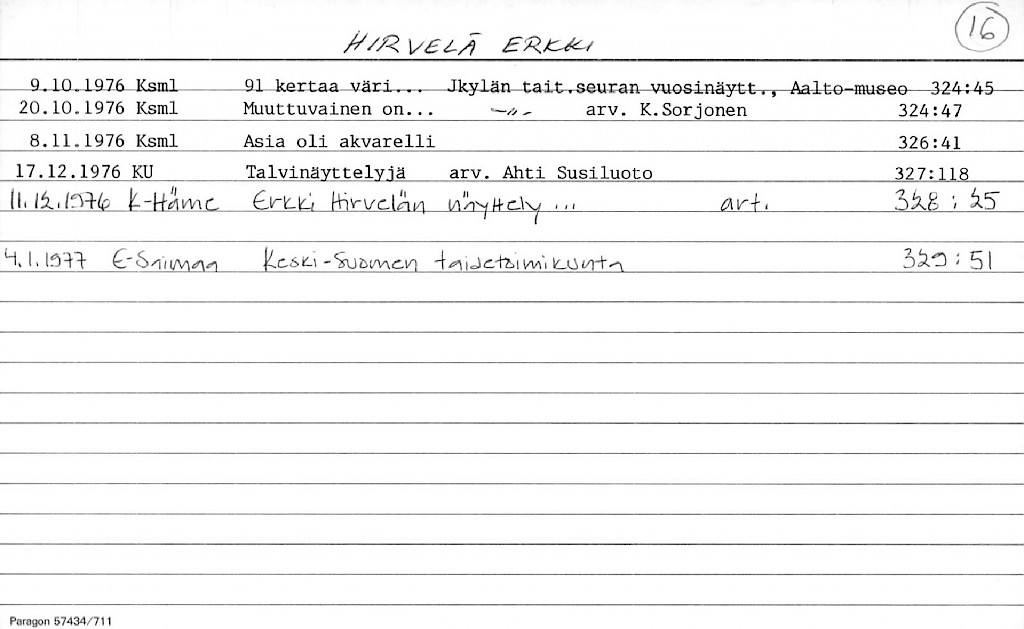 16
HIRVELÄ ERKKI
9.10.1976 Ksml 91 kertaa väri... Jkylän tait.seuran vuosinäytt., Aalto-museo 324:45
20.10.1976 Ksml Muuttuvainen on... -"- arv. K.Sorjonen 324:47
8.11.1976 Ksml Asia oli akvarelli 326:41
17.12.1976 KU Talvinäyttelyjä arv. Ahti Susiluoto 327:118
11.12.1976 K-Häme Erkki Hirvelän näyttely ... art. 328:25
4.1.1977 E-Saimaa Keski-Suomen taidetoimikunta 329:51
Paragon 57434/711